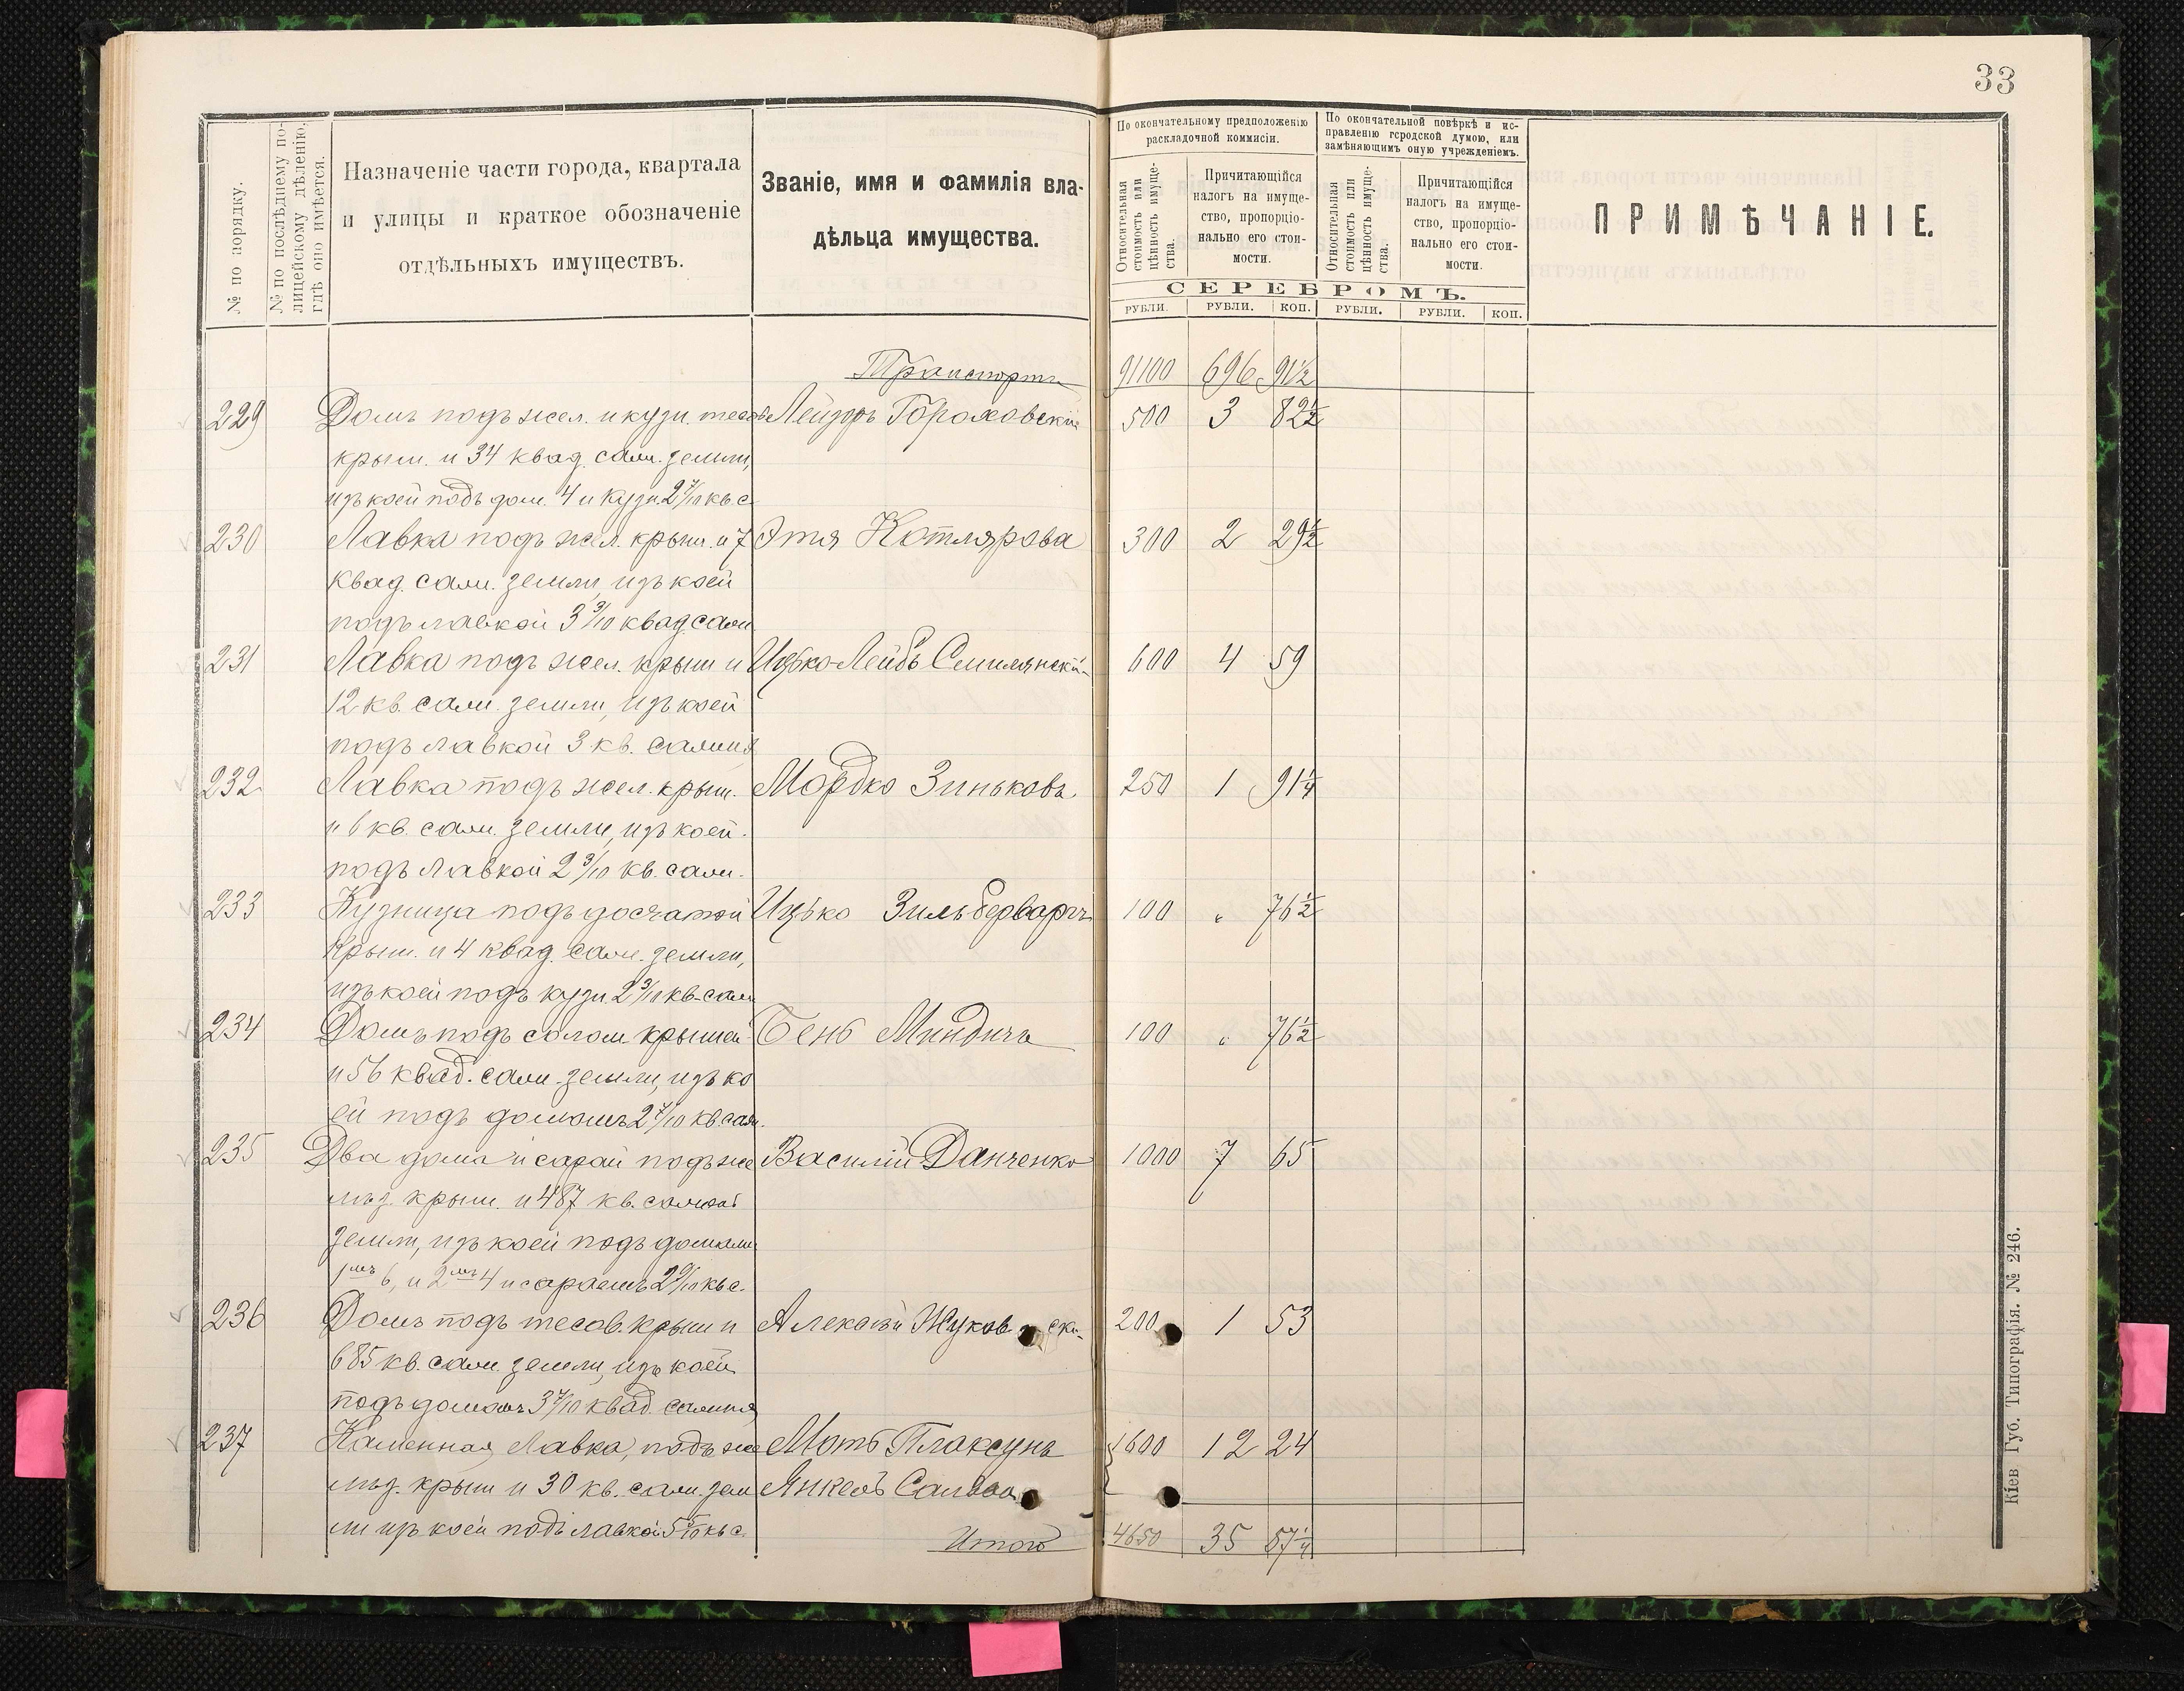 33
№ по порядку.
№ по послѣднему по-
лицейскому дѣленію,
гдѣ оно имѣется.
Назначеніе части города, квартала
и улицы и краткое обозначеніе
отдѣльныхъ имуществъ.
Званіе, имя и фамилія вла-
дѣльца имущества.
По окончательному предположенію
раскладочной коммисіи.
По окончательной повѣркѣ и ис-
правленію городской думою, или
замѣняющимъ оную учрежденіемъ.
Относительная
стоимость или
цѣнность имуще-
ства.
Причитающійся
налогъ на имуще-
ство, пропорціо-
нально его стои-
мости.
Относительная
стоимость или
цѣнность имуще-
ства.
Причитающійся
налогъ на имуще-
ство, пропорціо-
нально его стои-
мости.
ПРИМѢЧАНІЕ.
СЕРЕБРОМЪ.
РУБЛИ. РУБЛИ. КОП. РУБЛИ. РУБЛИ. КОП.
Транспортъ 91100 696 91½
229 Домъ подъ жел. и кузн. тесов Лейзоръ Гороховскій 500 3 82½
крыш. и 34 квад. саж. земли,
изъ коей подъ дом. 4 и кузн. 2 7/10 кв. с.
230 Лавка подъ жел. крыш. и 7 Этя Котлярова 300 2 29½
квад. саж. земли, изъ коей
подъ лавкой 3 3/10 квад. саж
231 Лавка подъ жел. крыш и Ицько-Лейбъ Смилянскій 600 4 59
12 кв. саж. земли, изъ коей
подъ лавкой 3 кв. сажня
232 Лавка подъ жел. крыш. Мордко Зиньковъ 250 1 91¼
и 6 кв. саж. земли, изъ коей
подъ лавкой 2 3/10 кв. саж.
233 Кузница подъ досчатой Ицько Зильберваргъ 100 " 76½
крыш. и 4 квад. саж. земли,
изъ коей подъ кузн 2 3/10 кв. саж
234 Домъ подъ солом крышей Бень Миндичъ 100 " 76½
и 56 квад. саж. земли, изъ ко
ей подъ домомъ 2 7/10 кв. саж.
235 Два дома и сарай подъ же Василій Данченко 1000 7 65
лѣз. крыш. и 487 кв. сажней
земли, изъ коей подъ домами
1мъ 6, и 2мъ 4 и сараемъ 2 9/10 кв с.
236 Домъ подъ тесов. крыш и Алексѣй Жуковскі 200 1 53
685 кв. саж. земли, изъ коей
подъ домомъ 3 7/10 квад. сажня
237 Каменная лавка, подъ же Моть Плаксунъ 1600 12 24
лѣз. крыш и 30 кв. саж. зем Янкель
ли изъ коей подъ лавкой кв с.
Итого 4650 35 57¼
Кіев Губ. Типографія. № 246.